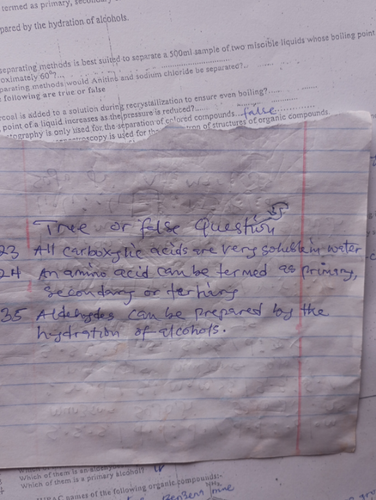 termed as primary, secondary
pared by the hydration of alcohols.
separating methods is best suited to separate a 500ml sample of two miscible liquids whose boiling point
oximately 60°?...
parating methods would Aniline and sodium chloride be separated?..
following are true or false
rcoal is added to a solution during recrystallization to ensure even boiling?
point of a liquid increases as the pressure is reduced?
atography is only used for the separation of colored compounds. false
troscopy is used for the of structures of organic compounds
True or false Question
23 All carboxylic acids are very soluble in water
24 An amino acid can be termed as primary,
secondary or tertiary
35 Aldehydes can be prepared by the
hydration of alcohols.
Which of them is an
Which of them is a primary alcohol?
names of the following organic compounds:-